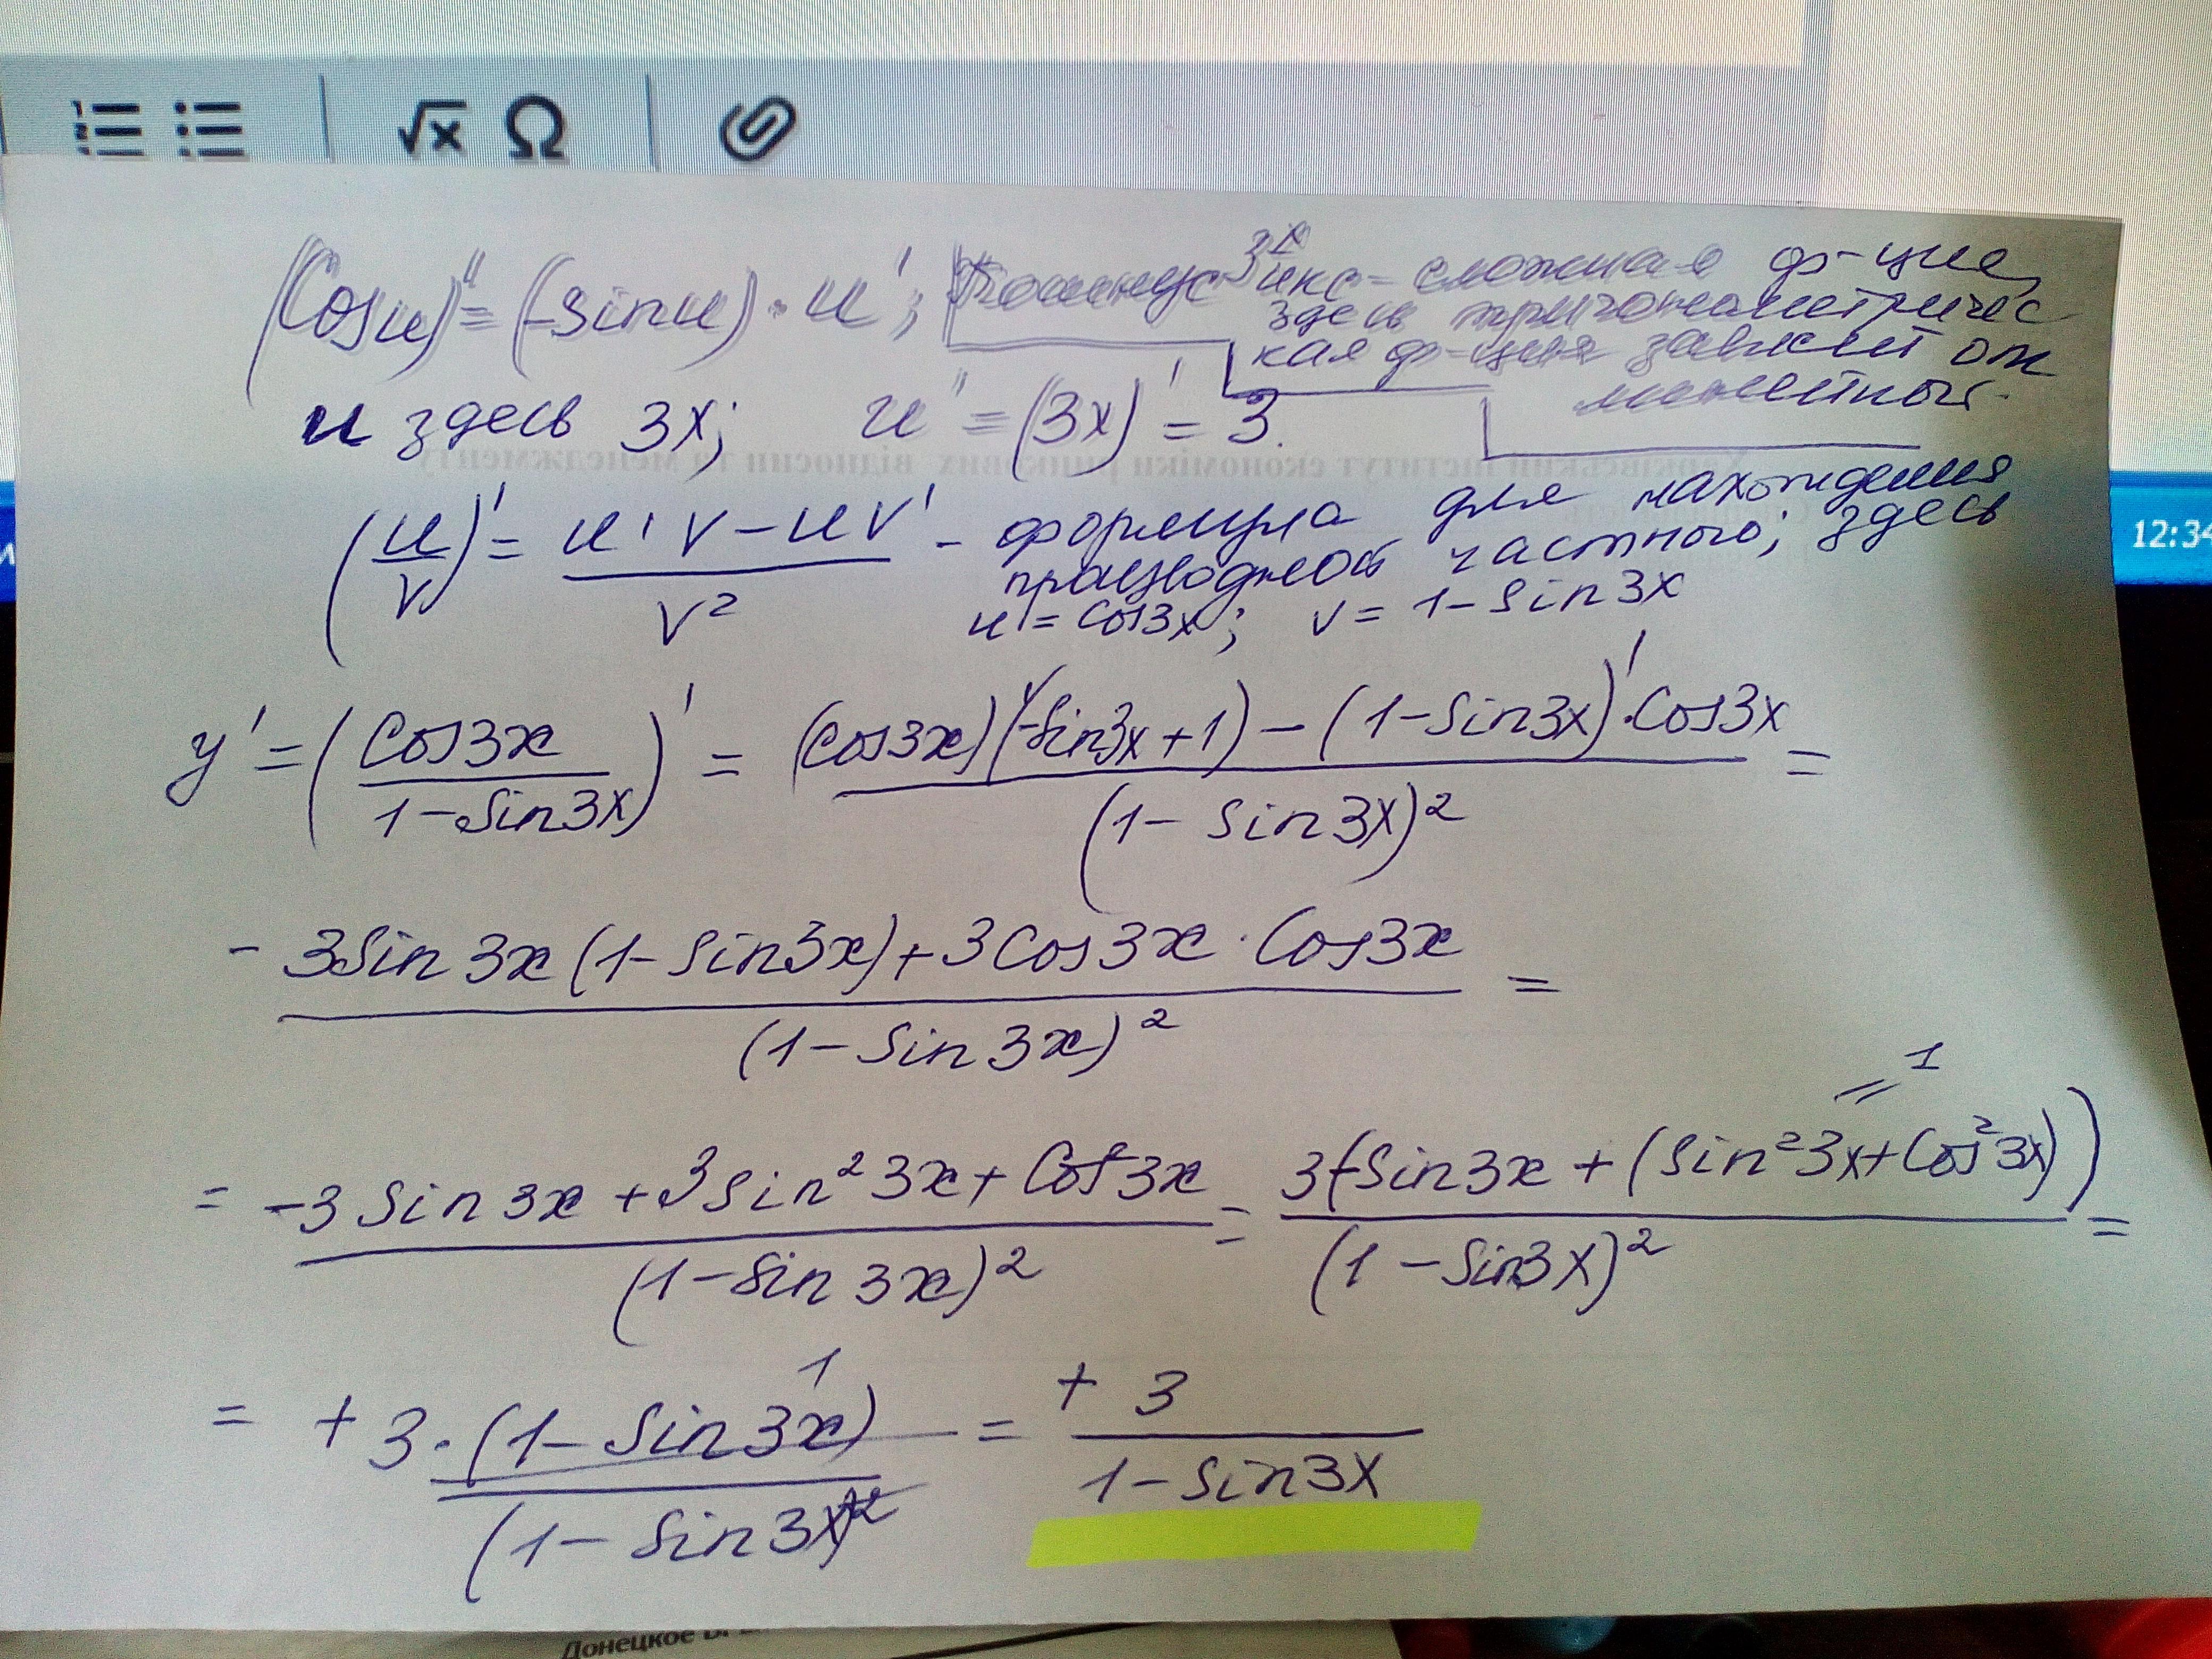 √x Ω
(Cos u)' = (-sin u) · u'; Косинус 3х икс - сложная ф-ция,
здесь тригонометричес
кая ф-ция зависит от
u здесь 3x; u' = (3x)' = 3.
(u/v)' = (u'v - uv')/v² - формула для нахождения
производной частного; здесь
u = cos3x; v = 1 - sin3x
12:34
y' = (Cos3x/(1-Sin3x))' = ((Cos3x)'(-Sin3x+1) - (1-Sin3x)'·Cos3x)/(1-Sin3x)² =
(-3Sin3x(1-Sin3x)+3Cos3x·Cos3x)/(1-Sin3x)² =
= 1
= (-3Sin3x+3Sin²3x+Cos²3x)/(1-Sin3x)² = 3(-Sin3x+(Sin²3x+Cos²3x))/(1-Sin3x)² =
= +3·(1-Sin3x)/(1-Sin3x)² = +3/(1-Sin3x)
1
Донецкое